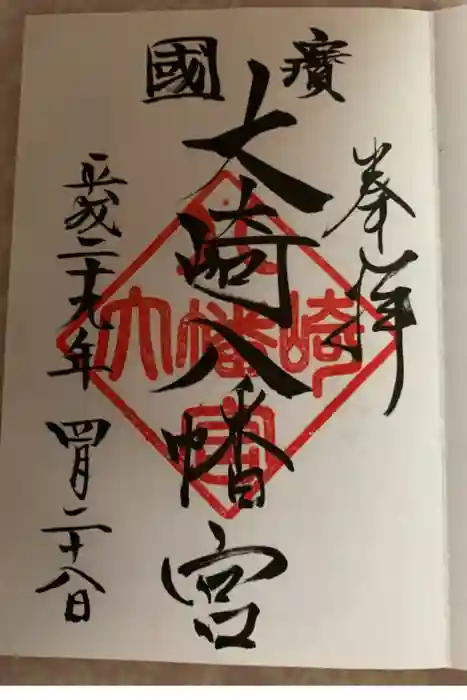 國寳
奉拝
大崎八幡宮
平成二十九年 四月二十八日
大幡崎
宮